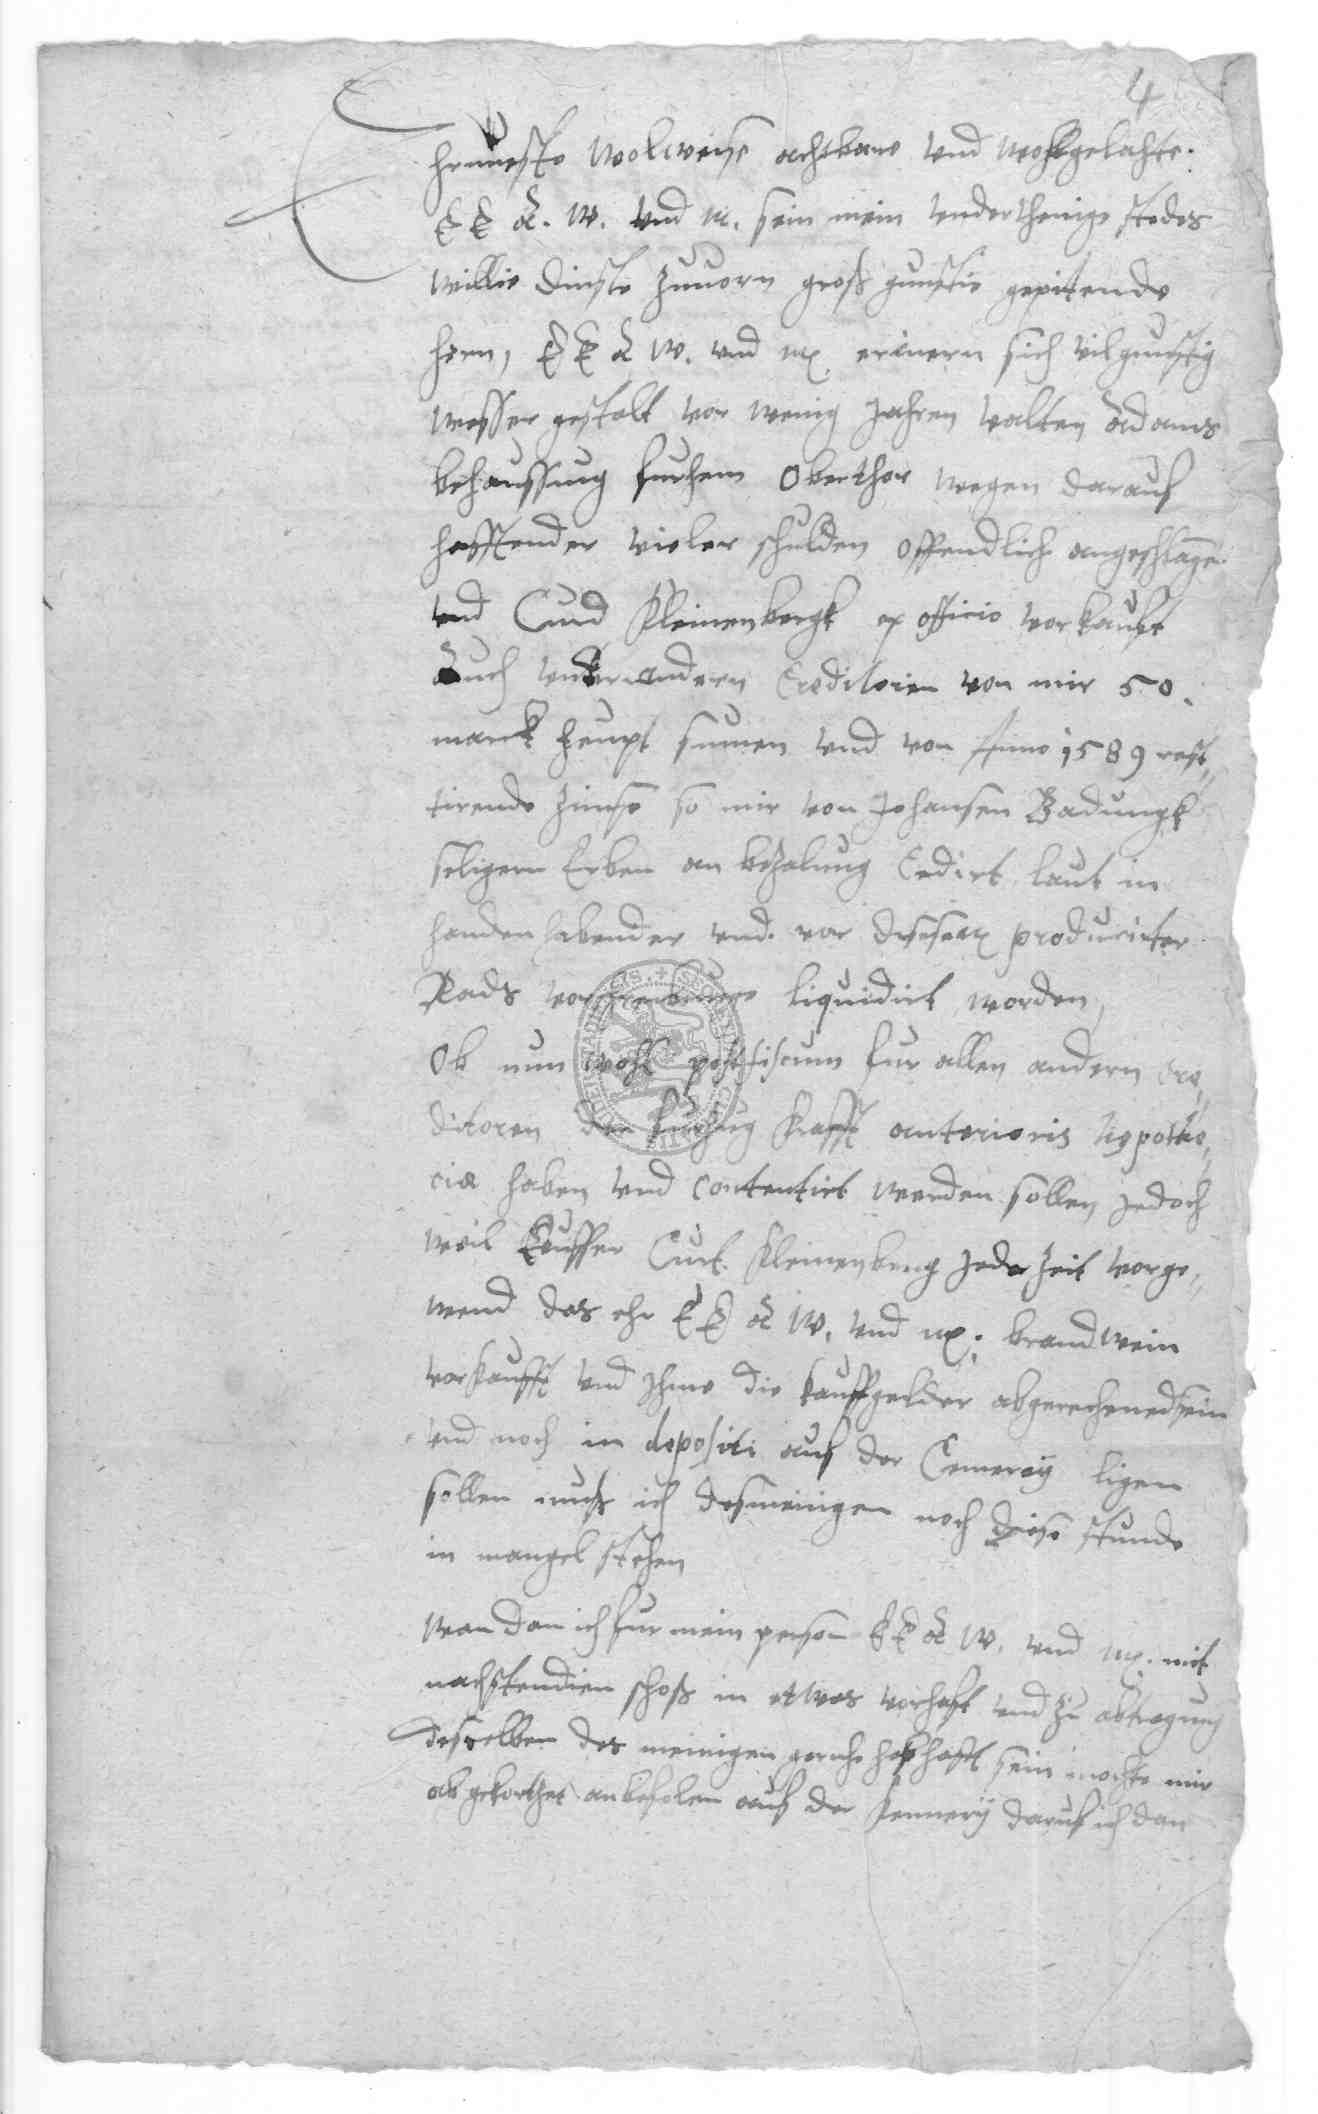 4
Ehrnueste Wolweise achtbare vnd wohlgelahrte.
E E A. W. vnd M. sein mein vnderthenige stedes
willie dinste zuuorn gross gunstie gepitende
hern, E E A W. vnd M. erinern sich vilgunstig
wesser gestalt vor wenig Jahren Valten Adams
behaussung furhem Oberthor wegen darauf
hafftender vieler schulden offendlich angeschlage.
vnd Curd Kleinenbergk ex officio vorkauft
Auch vnter andern Creditorien von mir 50.
marck heupt sumen vnd von Anno 1589 rest„
tirende Zinse so mir von Johansen Badungk
seligern Erben an bezalung Cedirt laut in
handen habender vnd vor dessem producirter
Rads vorschreibunge liquidirt worden,
Ob nun wohl post fiscum fur allen andern Cre„
ditoren den furzug krafft anterioris hypothe„
cia haben vnd contentirt werden sollen Jedoch
weil keuffer Curt Kleinenberg Jeder Zeit vorge„
wend das ehr E E A W. vnd M. brandwein
vorkaufft vnd Ihme die kauffgelder abgerechened sein
vnd noch in depositi auf der Cemerey ligen
sollen muss ich desmeinigen noch diese stunde
in mangel stehen
wan dan ich fur mein person E E A W. vnd M. mit
nachstendien schoss in etwas vorhaft vnd zu abtragung
desselben des meinigen gerne habhaft sein mochte mir
abgekorthet anbefolen auf der Kemmerÿ daruf ich dan